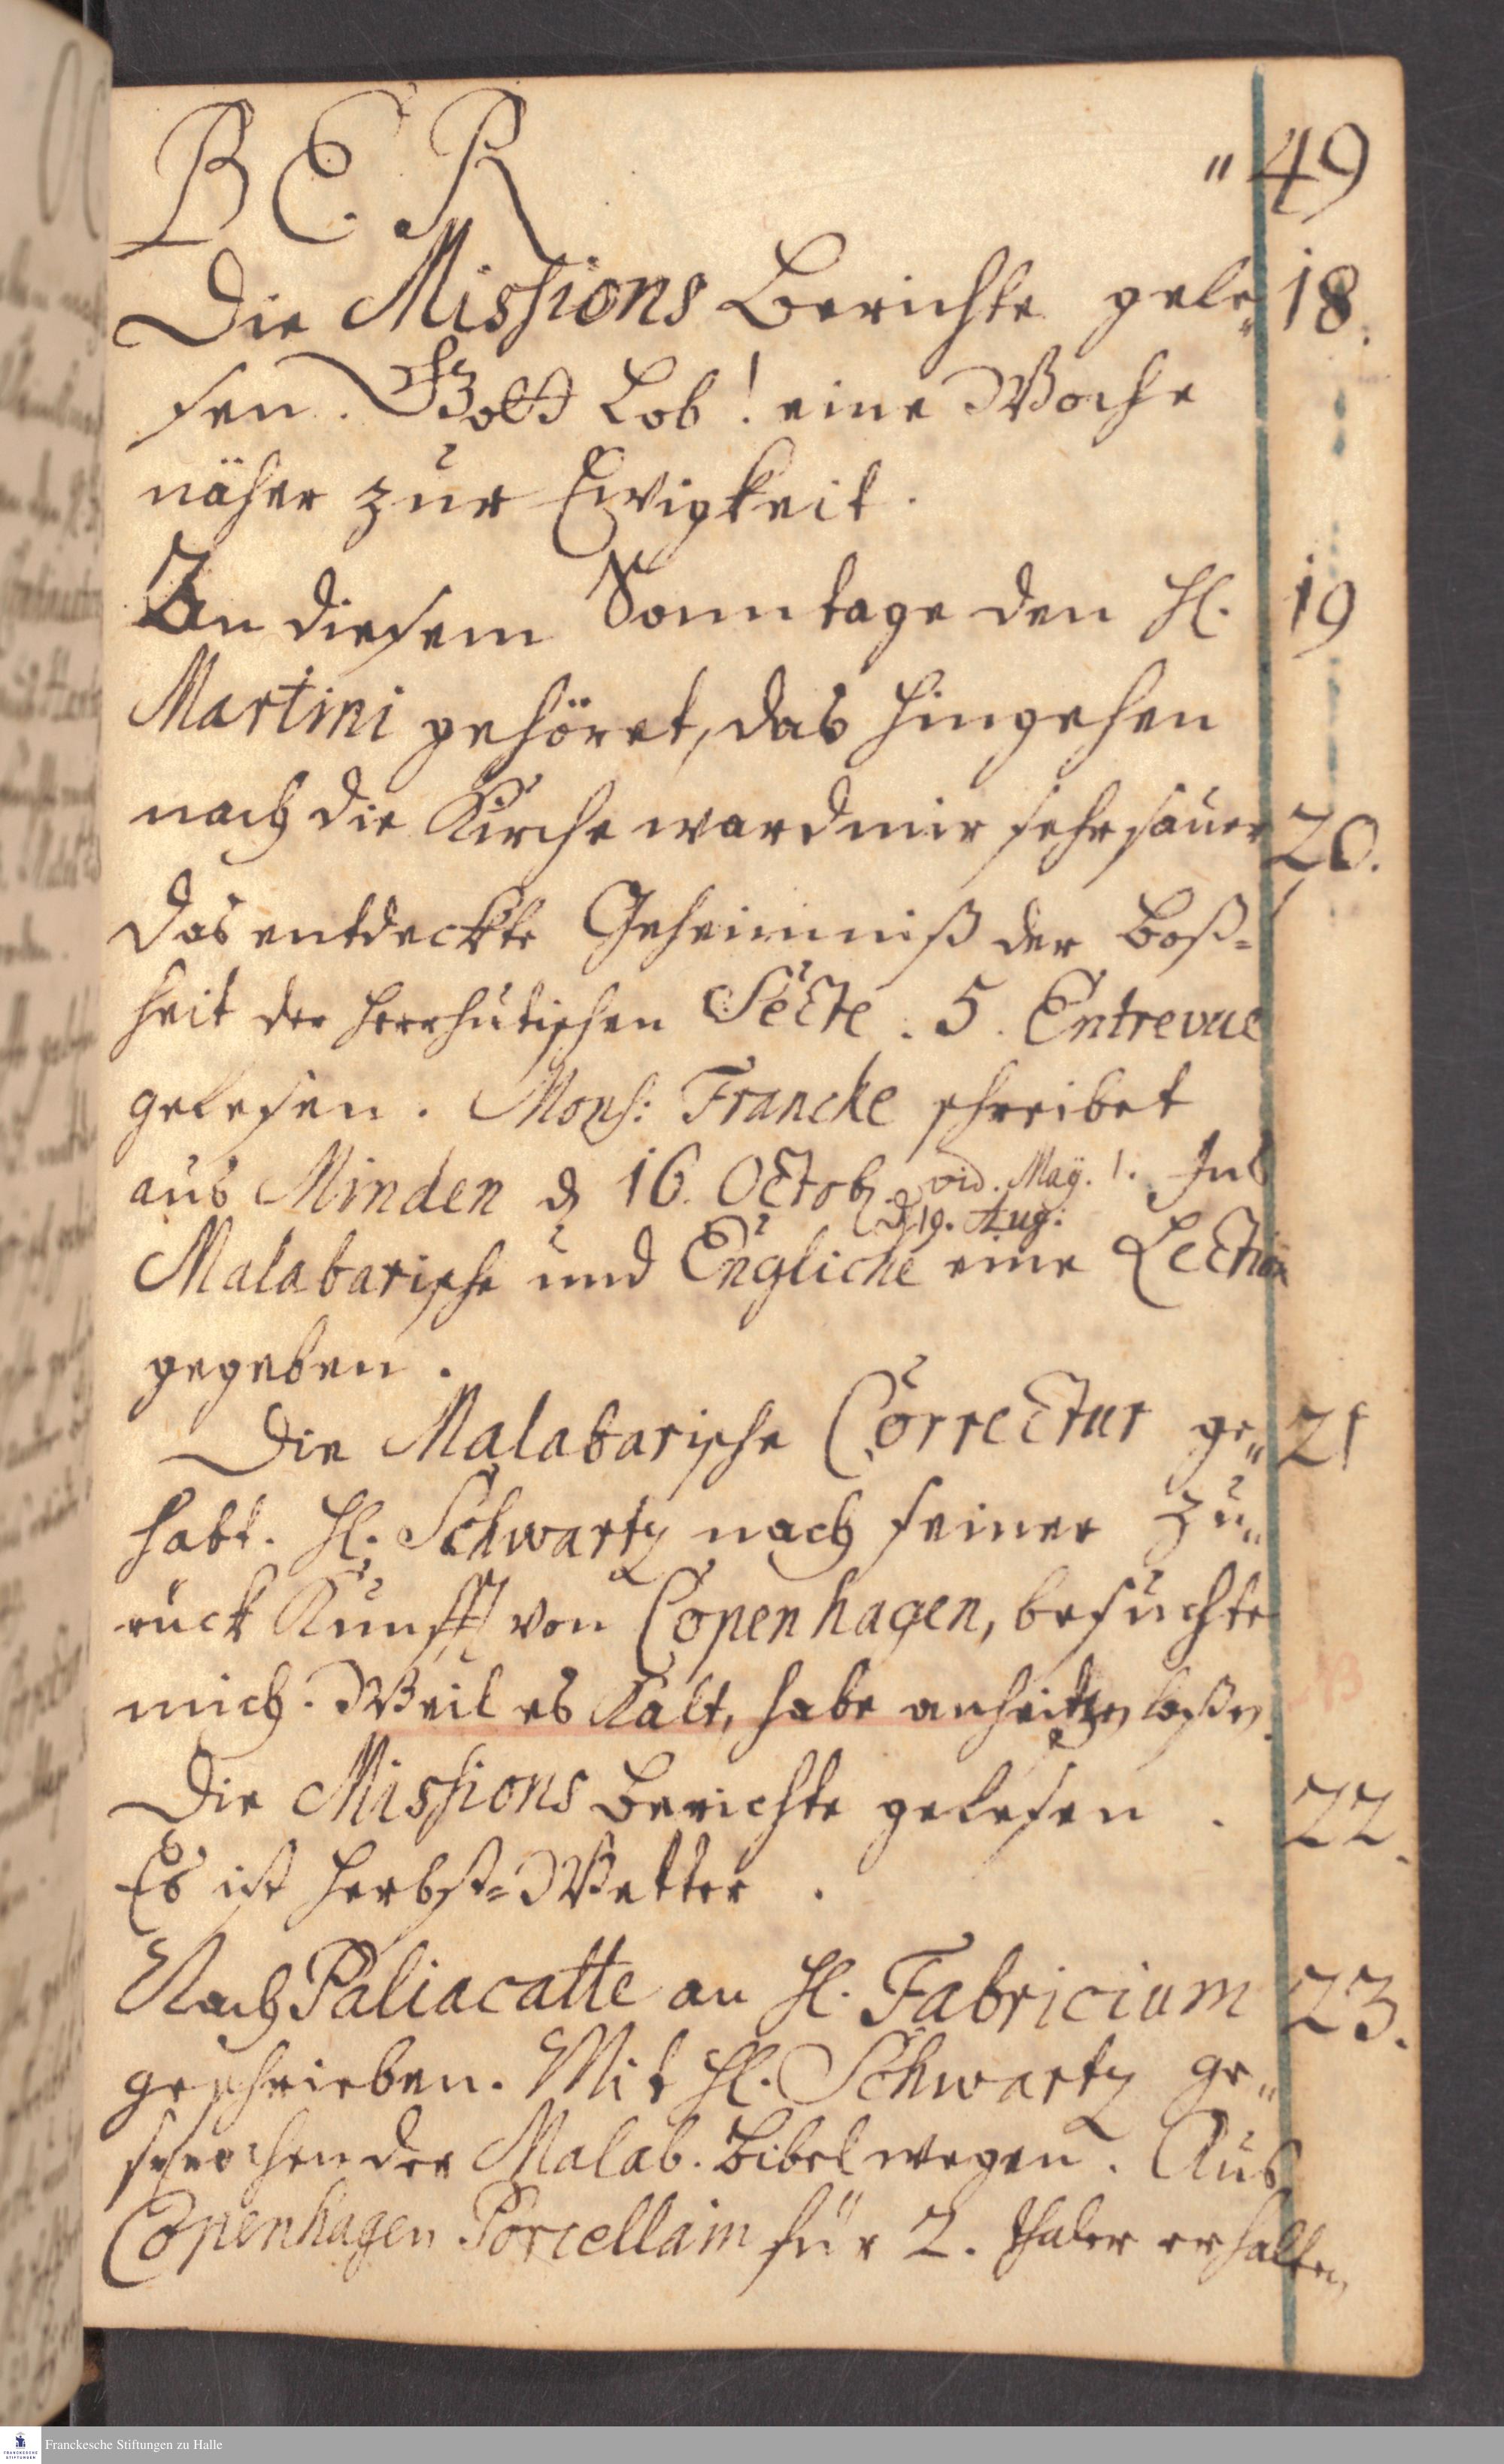 BER " 49
Die Missions Berichte gele= 18.
sen. Gott Lob! eine Woche
näher zur Ewigkeit.
An diesem Sonntage den H. 19
Martini gehöret, das hingehen
nach die Kirche ward mir sehr sauer 20.
Das entdeckte Geheimniß der Boß=
heit der Herrhutischen Secte. 5. Entrevue
gelesen. Mons: Francke schreibet
aus Minden d 16. Octob. vid. May. 1. Ins
d 19. Aug:
Malabarische und Engliche eine Lection
gegeben.
Die Malabarische Correctur ge= 21
habt. H. Schwartz nach seiner Zu=
rück Kunfft von Copenhagen, besuchte
mich. Weil es Kalt, habe anheitzen laßen.
Die Missions Berichte gelesen. 22.
Es ist Herbst=Wetter.
Nach Paliacatte an H. Fabricium 23.
geschrieben. Mit H. Schwartz ge=
sprochen der Malab. Bibel wegen. Aus
Copenhagen Porcellain für 2. Thaler erhalten
FRANCKESCHE STIFTUNGEN
Franckesche Stiftungen zu Halle